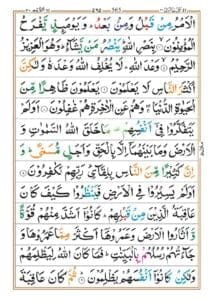 الْاَمْرُ مِنْ قَبْلُ وَمِنْۢ بَعْدُ ؕ وَيَوْمَئِذٍ يَّفْرَحُ
الْمُؤْمِنُوْنَ ۙ بِنَصْرِ اللّٰهِ ؕ يَنْصُرُ مَنْ يَّشَآءُ ؕ وَهُوَ الْعَزِيْزُ
الرَّحِيْمُ ۙ وَعْدَ اللّٰهِ ؕ لَا يُخْلِفُ اللّٰهُ وَعْدَهٗ وَلٰكِنَّ
اَكْثَرَ النَّاسِ لَا يَعْلَمُوْنَ ۝ يَعْلَمُوْنَ ظَاهِرًا مِّنَ
الْحَيٰوةِ الدُّنْيَا ۖ وَهُمْ عَنِ الْاٰخِرَةِ هُمْ غٰفِلُوْنَ ۝ اَوَلَمْ
يَتَفَكَّرُوْا فِيْٓ اَنْفُسِهِمْ ۫ مَا خَلَقَ اللّٰهُ السَّمٰوٰتِ وَ
الْاَرْضَ وَمَا بَيْنَهُمَآ اِلَّا بِالْحَقِّ وَاَجَلٍ مُّسَمًّى ؕ وَ
اِنَّ كَثِيْرًا مِّنَ النَّاسِ بِلِقَآئِ رَبِّهِمْ لَكٰفِرُوْنَ ۝
اَوَلَمْ يَسِيْرُوْا فِي الْاَرْضِ فَيَنْظُرُوْا كَيْفَ كَانَ
عَاقِبَةُ الَّذِيْنَ مِنْ قَبْلِهِمْ ؕ كَانُوْٓا اَشَدَّ مِنْهُمْ قُوَّةً
وَّاَثَارُوا الْاَرْضَ وَعَمَرُوْهَآ اَكْثَرَ مِمَّا عَمَرُوْهَا وَ
جَآءَتْهُمْ رُسُلُهُمْ بِالْبَيِّنٰتِ ؕ فَمَا كَانَ اللّٰهُ لِيَظْلِمَهُمْ
وَلٰكِنْ كَانُوْٓا اَنْفُسَهُمْ يَظْلِمُوْنَ ۝ ثُمَّ كَانَ عَاقِبَةَ